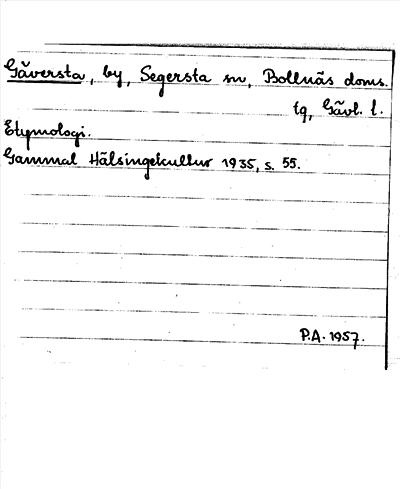 Gäversta, by, Segersta sn, Bollnäs doms.
tg, Gävl. l.
Etymologi.
Gammal Hälsingekultur 1935, s. 55.
P.A. 1957.